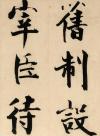 舊制設
宰臣待